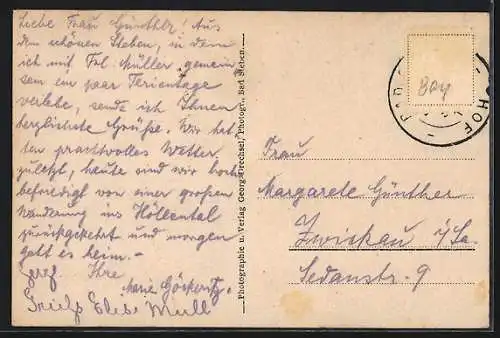 Liebe Frau Günther! Aus
dem schönen Steben, in dem
ich mit Frl. Müller, gemein-
sam ein paar Ferientage
verlebe, sende ich Ihnen
herzlichste Grüße. Wir hat-
ten prachtvolles Wetter
zuletzt, heute sind wir hoch-
befriedigt von einer großen
Wanderung ins Höllental
zurückgekehrt und morgen
geht es heim. –
Ihre
Marie
Elise Müll
Photographie u. Verlag Georg Drechsel, Photogr., Bad Steben.
BAD
HOF
Bay
Frau
Margarete Günther
Zwickau i/Sa.
Sedanstr. 9